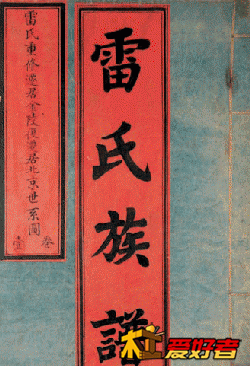 雷氏族譜
雷氏重修遷居金陵復遷居北京世系圖
卷
壹
爱好者